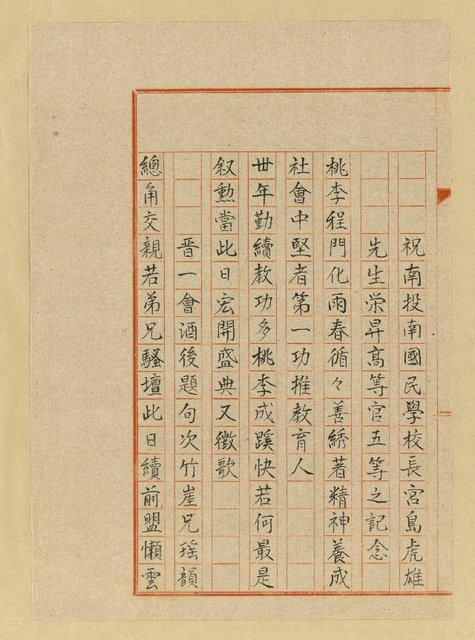 祝南投南國民學校長宮島虎雄
先生栄昇高等官五等之記念
桃李程門化雨春循々善綉著精神養成
社會中堅者第一功推教育人
丗年勤續教功多桃李成蹊快若何最是
叙勲當此日宏開盛典又徵歌
晋一會酒後題句次竹崖兄瑶韻
總角交親若弟兄騷壇此日續前盟懶雲